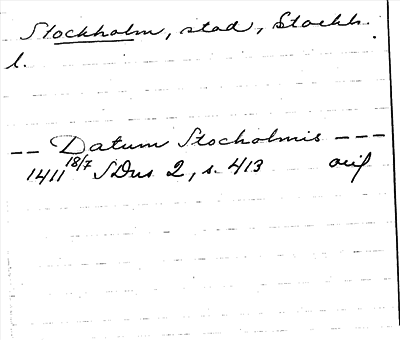 Stockholm, stad, Stockh.
l.
-- Datum Stocholmis ---
1411 18/7 SDns 2, s. 413 orig